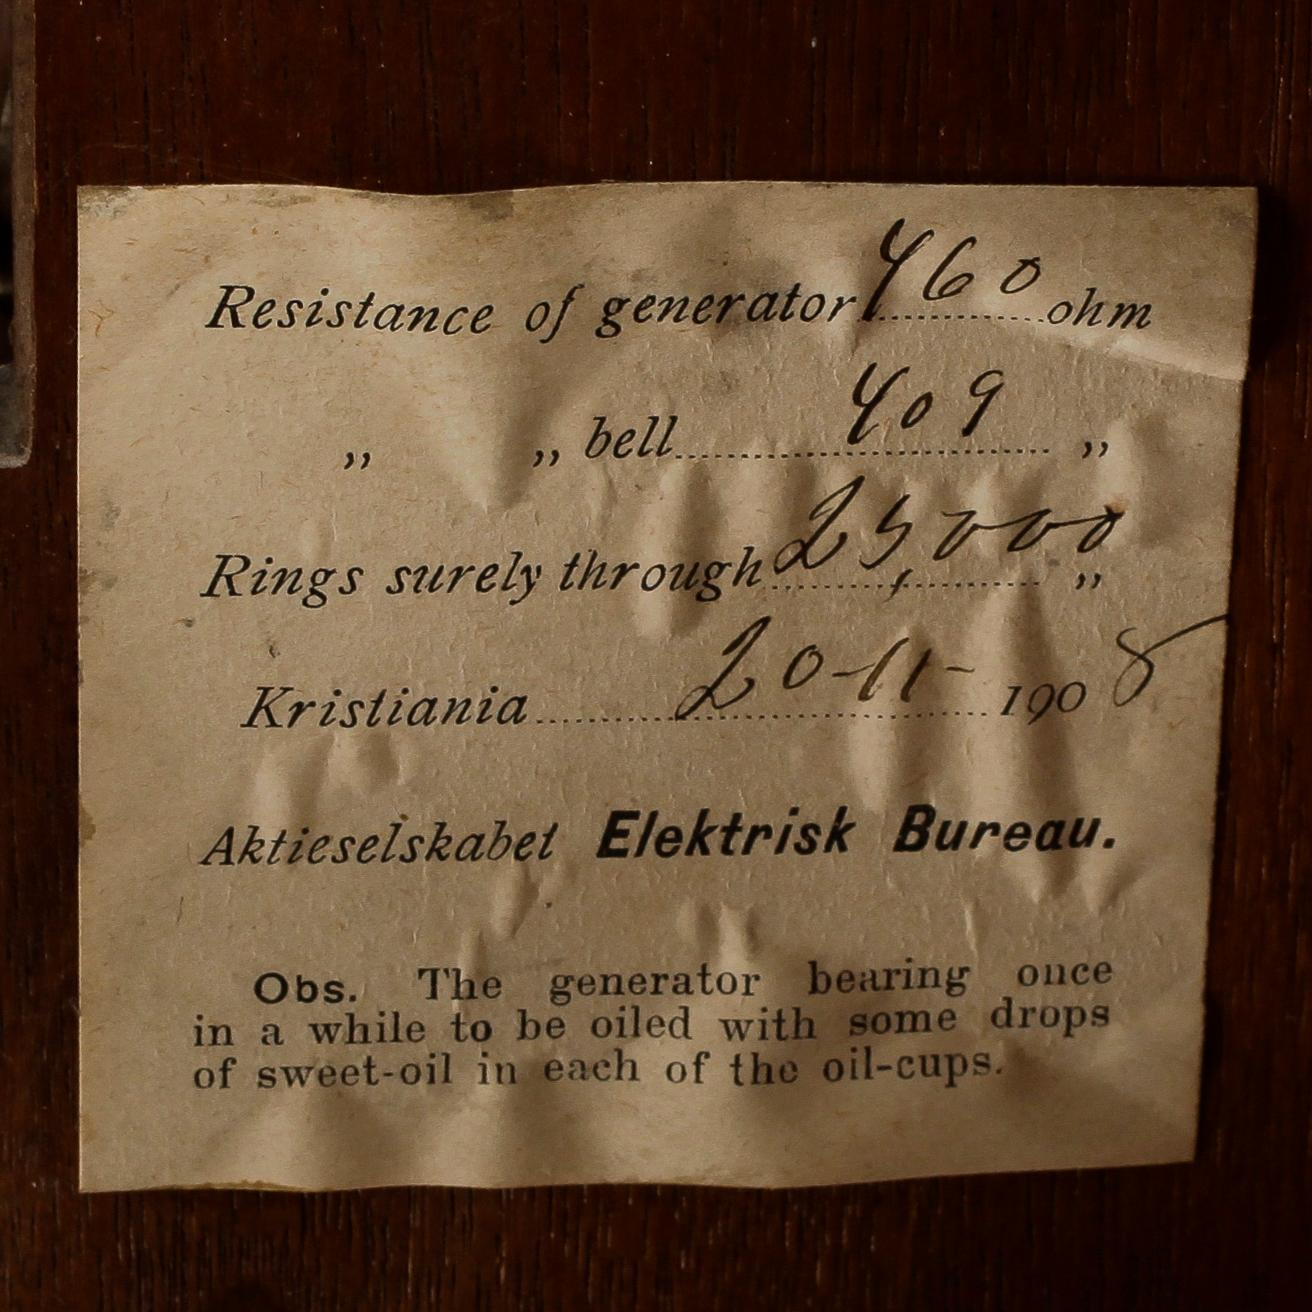 Resistance of generator 460 ohm
„ „ bell 409 „
Rings surely through 25,000 „
Kristiania 20-11- 1908
Aktieselskabet Elektrisk Bureau.
Obs. The generator bearing once
in a while to be oiled with some drops
of sweet-oil in each of the oil-cups.